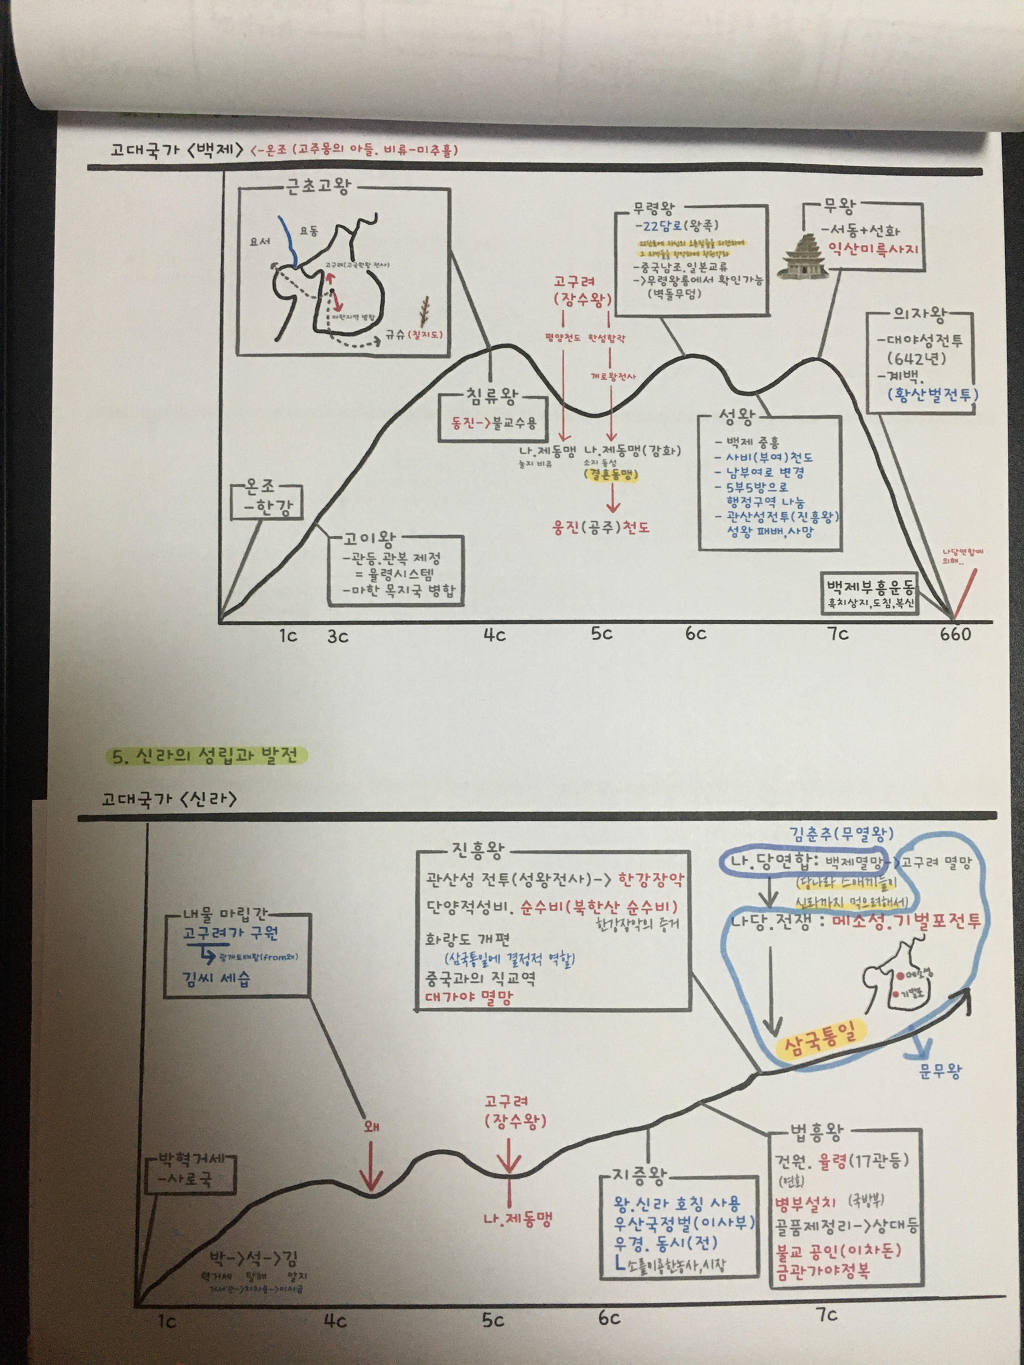 고대국가 <백제> <-온조 (고주몽의 아들. 비류-미추홀)
근초고왕
요서
요동
고구려(고국원왕 전사)
마한지역 병합
규슈(칠지도)
침류왕
동진->불교수용
온조
-한강
고이왕
-관등.관복 제정
= 율령시스템
-마한 목지국 병합
고구려
(장수왕)
평양천도 한성함락
개로왕전사
나.제동맹
눌지 비유
나.제동맹(강화)
소지 동성
(결혼동맹)
웅진(공주)천도
무령왕
-22담로(왕족)
-중국남조.일본교류
->무령왕릉에서 확인가능
(벽돌무덤)
무왕
-서동+선화
익산미륵사지
성왕
- 백제 중흥
- 사비(부여)천도
- 남부여로 변경
- 5부5방으로
행정구역 나눔
- 관산성전투(진흥왕)
성왕 패배,사망
의자왕
-대야성전투
(642년)
-계백.
(황산벌전투)
나당연합에
의해..
백제부흥운동
흑치상지,도침,복신
1c 3c 4c 5c 6c 7c 660
5. 신라의 성립과 발전
고대국가 <신라>
박혁거세
-사로국
박->석->김
혁거세 탈해 알지
내물 마립간
고구려가 구원
광개토대왕(from왜)
김씨 세습
왜
고구려
(장수왕)
나.제동맹
진흥왕
관산성 전투(성왕전사)-> 한강장악
단양적성비. 순수비(북한산 순수비)
한강장악의 증거
화랑도 개편
(삼국통일에 결정적 역할)
중국과의 직교역
대가야 멸망
지증왕
왕.신라 호칭 사용
우산국정벌(이사부)
우경. 동시(전)
소를이용한농사,시장
법흥왕
건원. 율령(17관등)
(연호)
병부설치 (국방부)
골품제정리->상대등
불교 공인(이차돈)
금관가야정복
김춘추(무열왕)
나.당연합: 백제멸망->고구려 멸망
(당나라 스애끼들이
신라까지 먹으려해서)
나당.전쟁 : 매소성.기벌포전투
매소성
기벌포
삼국통일
문무왕
1c 4c 5c 6c 7c